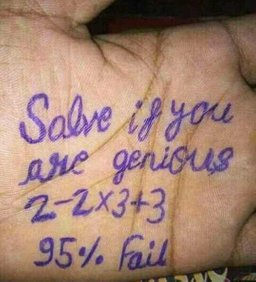 Solve if you
are genious
2-2x3+3
95% Fail